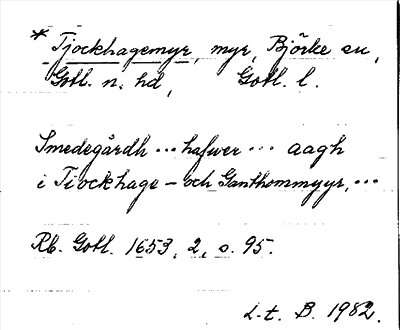 * Tjockhagemyr, myr, Björke sn,
Gotl. n. hd, Gotl. l.
Smedegårdh ... hafwer ... aagh
i Tiockhage - och Ganthommyyr, ...
Rb. Gotl. 1653, 2, s. 95.
L-t. B. 1982.